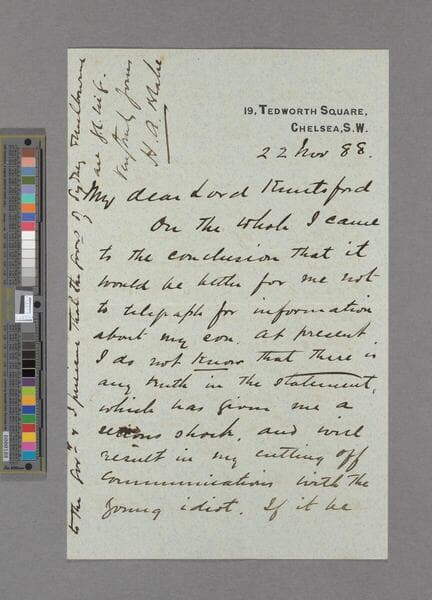 19, TEDWORTH SQUARE,
CHELSEA, S.W.
22 Nov 88.
My dear Lord Knutsford
On the whole I came
to the conclusion that it
would be better for me not
to telegraph for information
about my son. At present
I do not know that there is
any truth in the statement,
which has given me a
serious shock, and will
result in my cutting off
communications with the
young idiot. If it be
to the Govt & I presume that the Govrs of Sydney Melbourne
are
Very truly yours
H. A. Blake